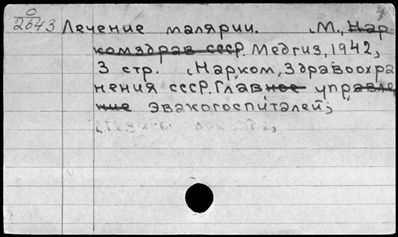 0
2643 Лечение малярии. М., Нар
комздрав СССР. Медгиз, 1942,
3 стр. (Нарком, Здравоохра
нения СССР. Главное управле
ние эвакогоспиталей);